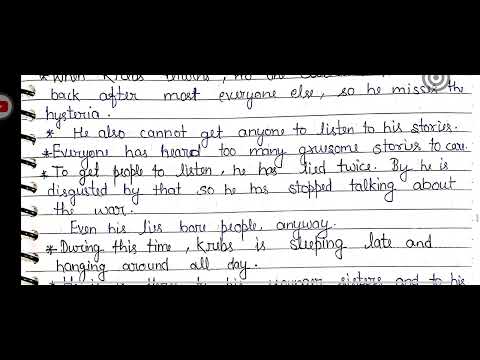 * When Krebs returns, no one
back after most everyone else, so he misses the
hysteria.
* He also cannot get anyone to listen to his stories.
*Everyone has heard too many gruesome stories to care.
* To get people to listen, he has lied twice. By he is
disgusted by that so he has stopped talking about
the war.
Even his lies bore people, anyway.
*During this time, Krebs is sleeping late and
hanging around all day.
younger sisters and to his